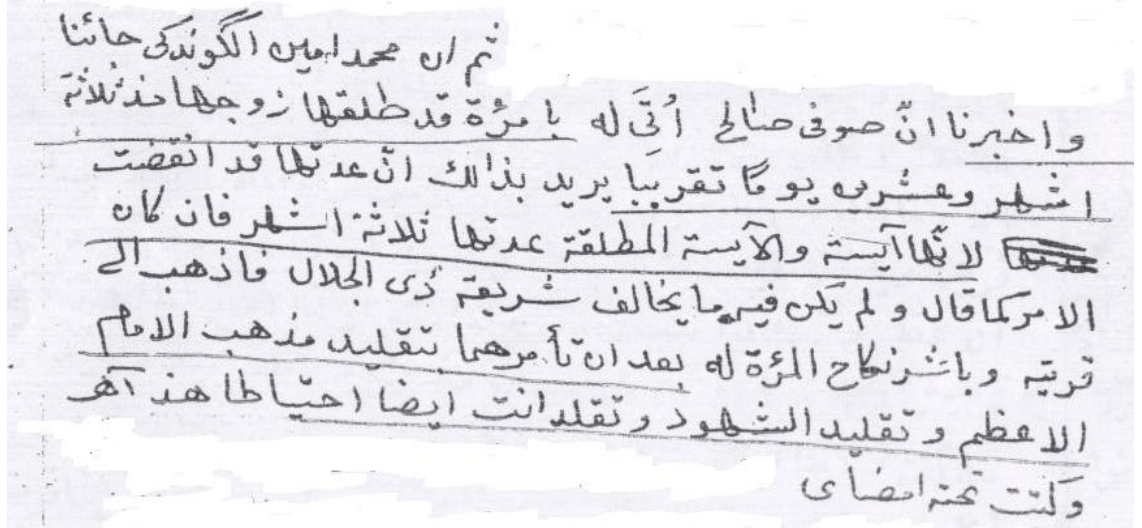 ثم ان محمد امين الگوندكى جائنا
و اخبرنا انّ صوفى صالح اُتِىَ له بامرٔة قد طلقها زوجها منذ ثلاثة
اشهر وعشرين يومًا تقريبا يريد بذالك انّ عدتها قد انقضت
لانّها آيسة والآيسة المطلقة عدتها ثلاثة اشهر فان كان
الامر كما قال و لم يكن فيه ما يخالف شريعة ذى الجلال فاذهب الى
قريته وباشر نكاح المرٔة له بعد ان تأمرهما بتقليد مذهب الامام
الاعظم و تقليد الشهود وتقلد انت ايضا احتياطا هذ اهـ
وكتبت تحته امضاى